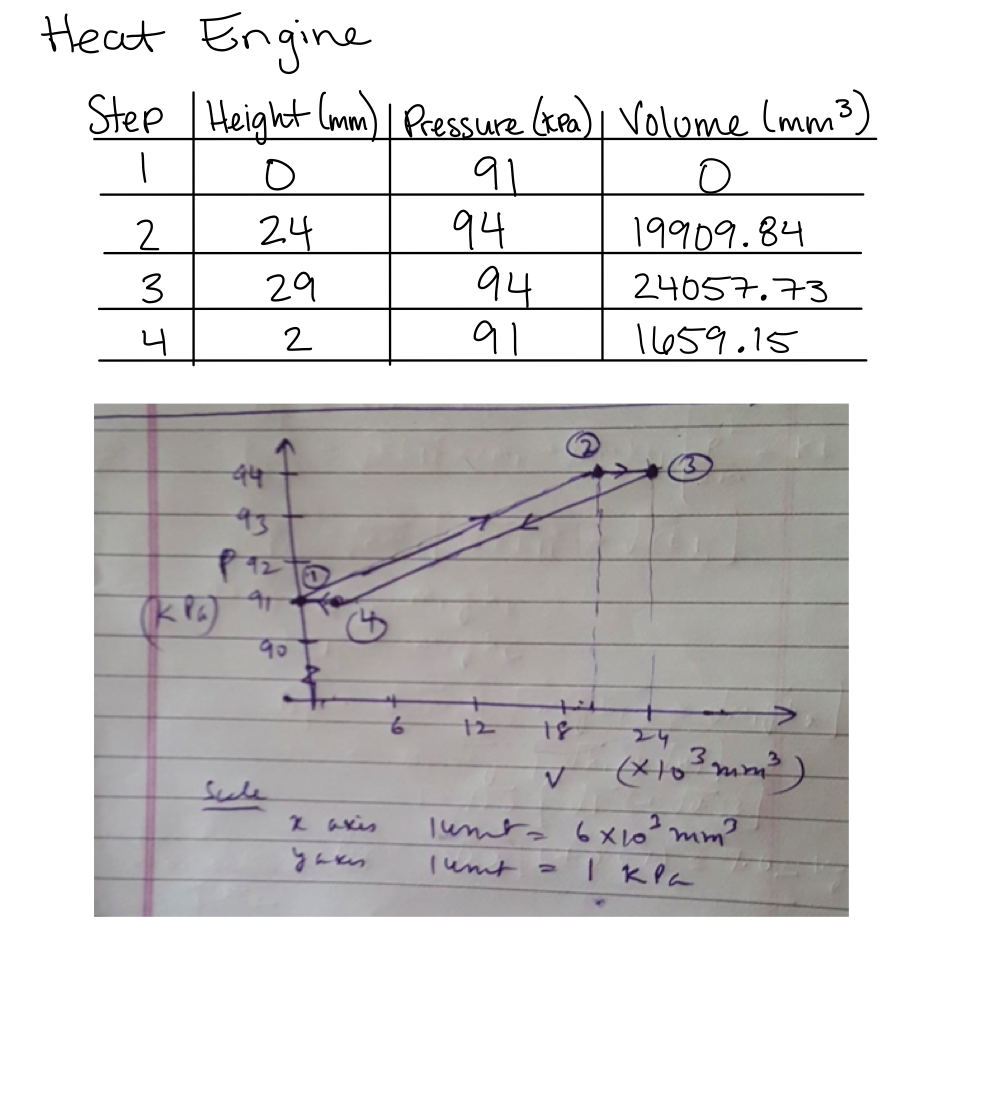 Heat Engine
Step Height (mm) Pressure (kPa) Volume (mm³)
1 0 91 0
2 24 94 19909.84
3 29 94 24057.73
4 2 91 1659.15
② ③
94
93
P 92 ①
(KPa) 91 ④
90
6 12 18 24
V (×10³ mm³)
Scale
x axis 1 unit = 6×10³ mm³
y axis 1 unit = 1 KPa